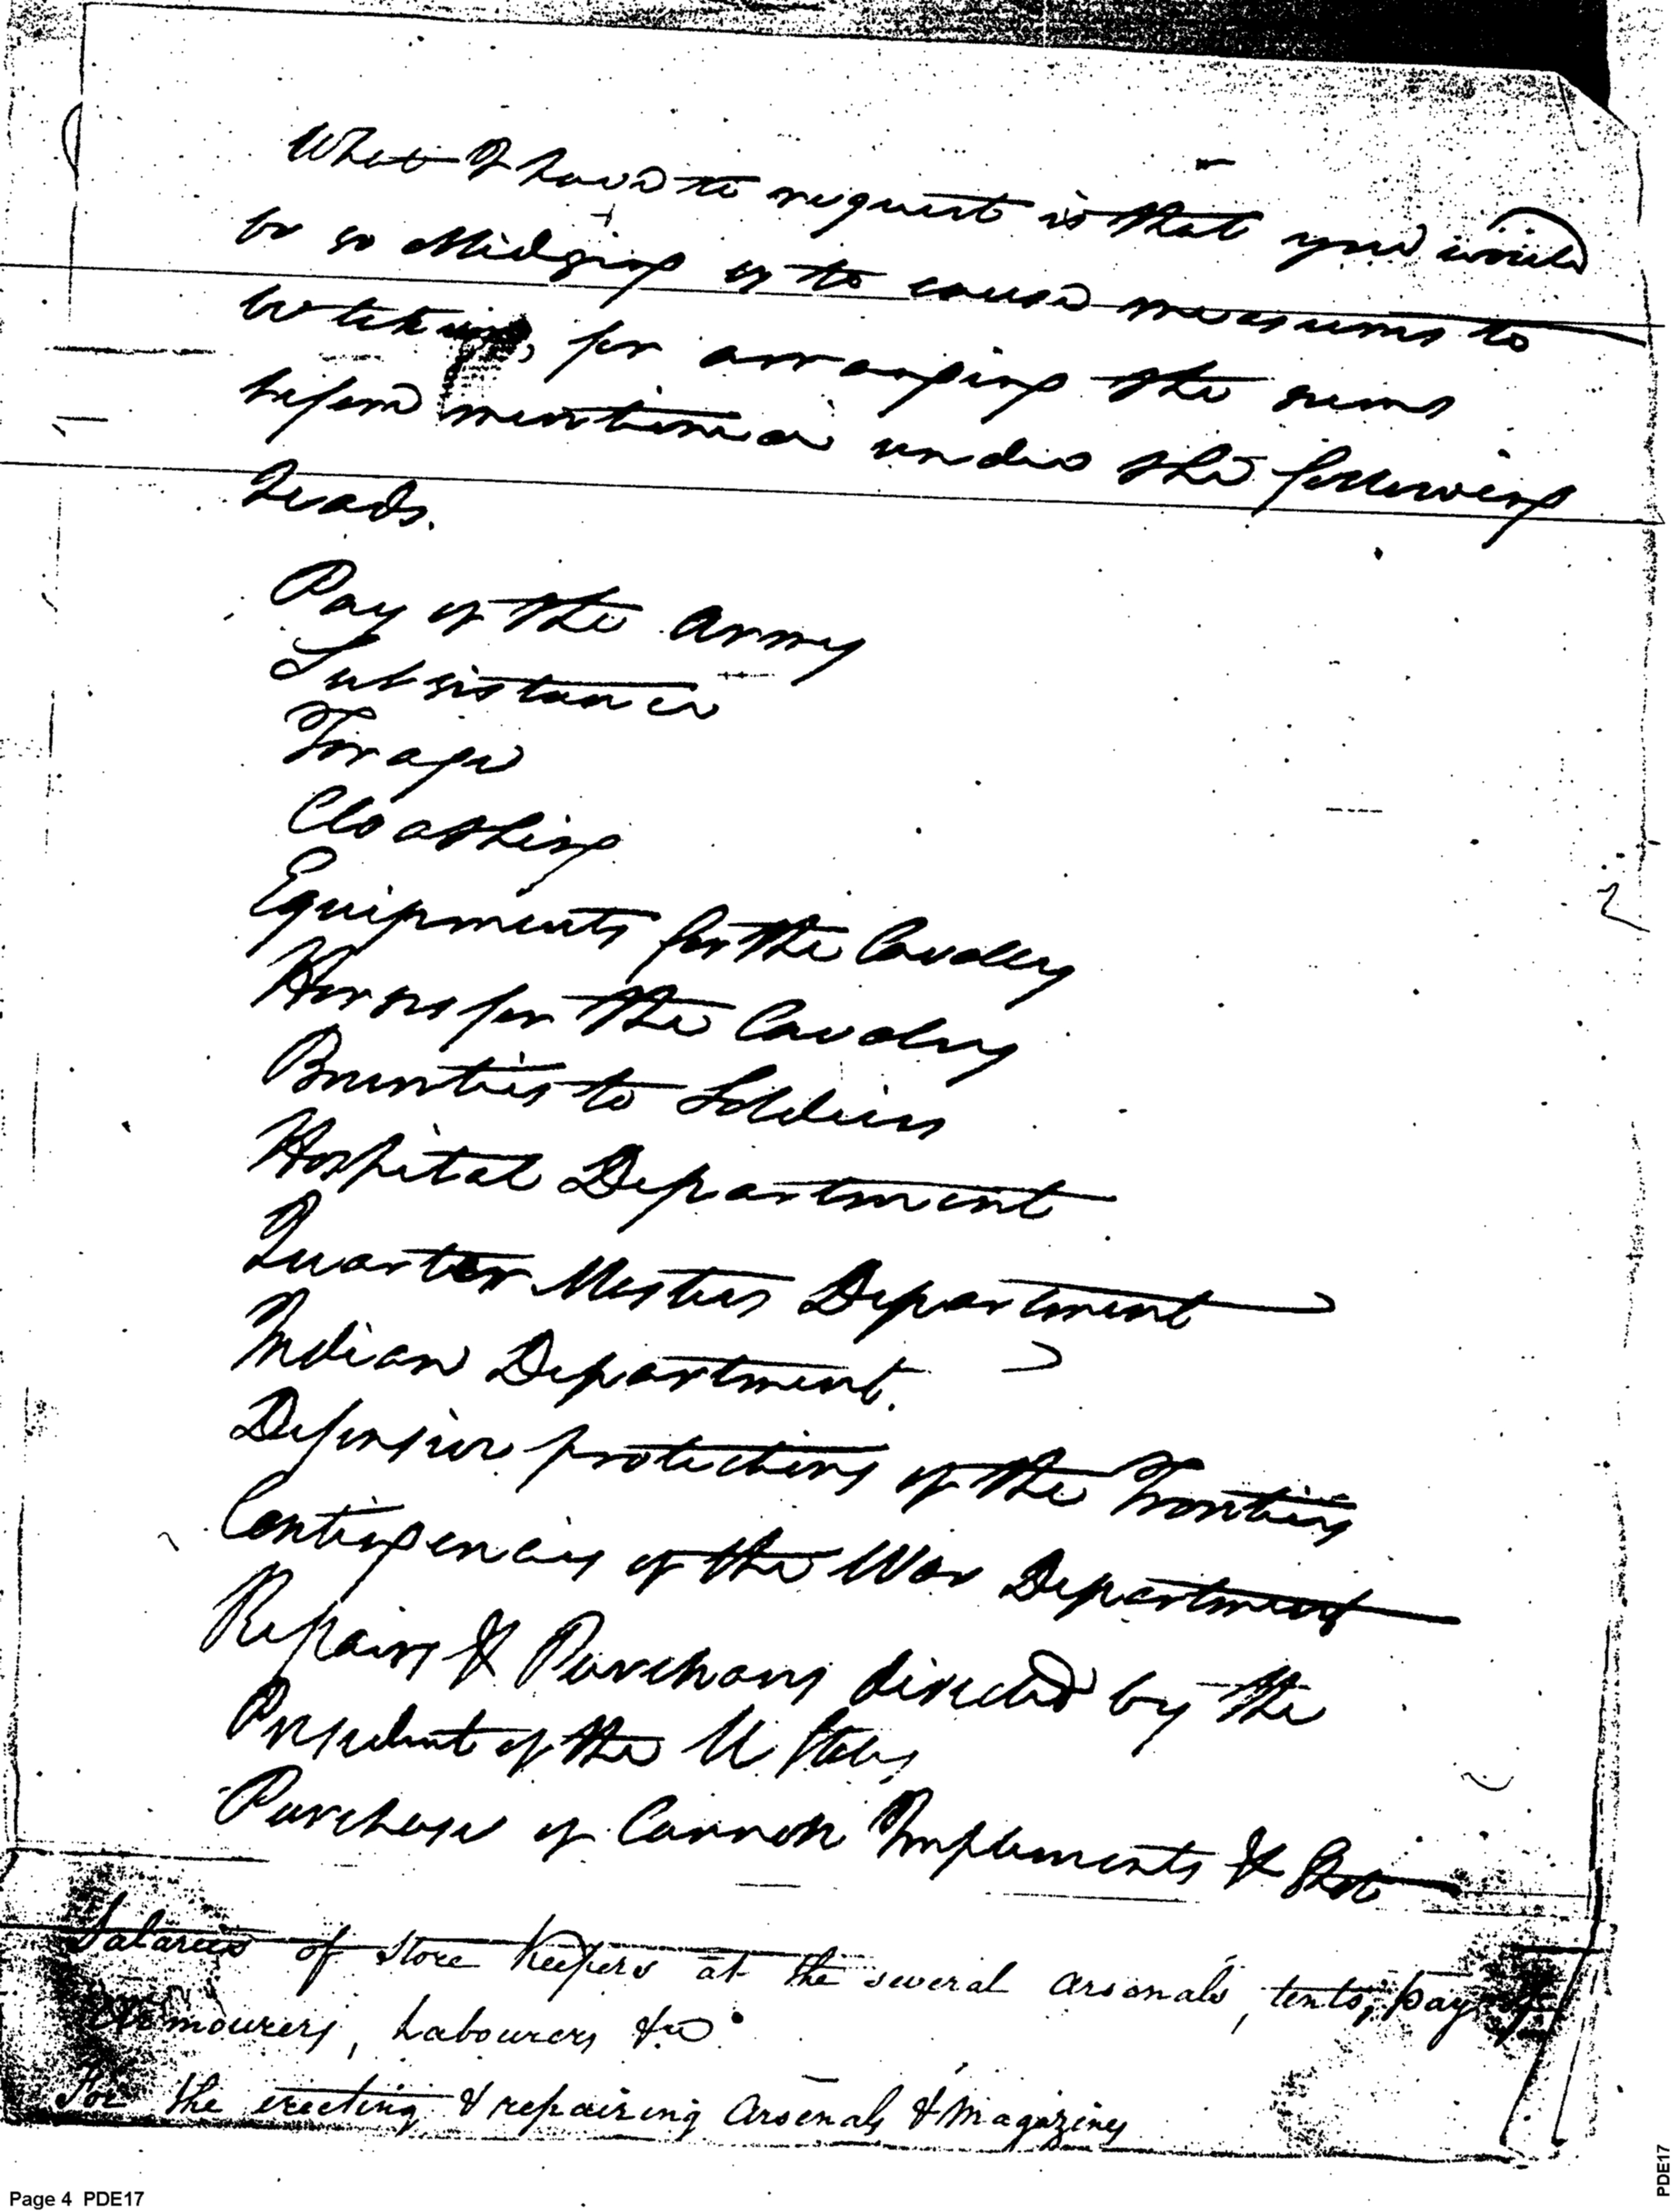 What I have to request is that you would
be so obliging as to cause measures to
be taken, for arranging the sums
before mentioned under the following
heads.
Pay of the Army
Subsistance
Forage
Cloathing
Equipments for the Cavalry
Horses for the Cavalry
Bounties to Soldiers
Hospital Department
Quarter Masters Department
Indian Department.
Defensive protections of the Frontiers
Contingencies of the War Department
Repairs & Purchases directed by the
President of the U States
Purchase of Cannon Implements & Shot
Salaries of Store Keepers at the several arsenals, tents, pay of
Armourers, Labourers &c.
For the erecting & repairing Arsenals & Magazines
Page 4 PDE17
PDE17